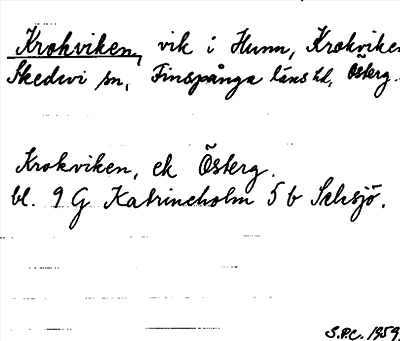 Krokviken, vik i Hunn, Krokviken
Skedevi sn, Finspånga läns hd, Österg.
Krokviken, ek Österg.
bl. 9 G Katrineholm 5 b Selesjö.
S.P.C. 1959